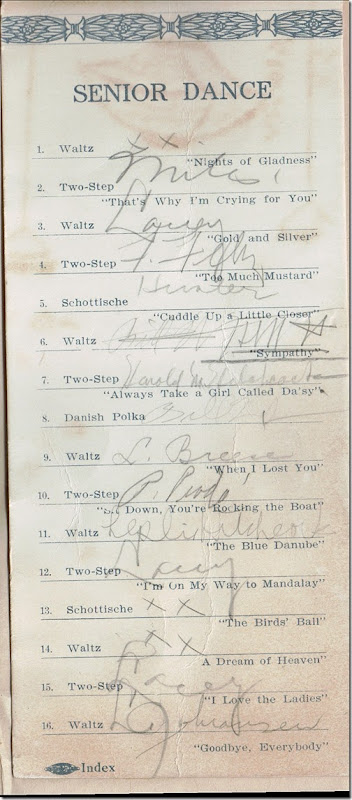 SENIOR DANCE
1. Waltz x x
"Nights of Gladness"
2. Two-Step Miles
"That's Why I'm Crying for You"
3. Waltz Lacey
"Gold and Silver"
4. Two-Step F.
"Too Much Mustard"
5. Schottische Hunter
"Cuddle Up a Little Closer"
6. Waltz
"Sympathy"
7. Two-Step Harold
"Always Take a Girl Called Da'sy"
8. Danish Polka
9. Waltz L. Breese
"When I Lost You"
10. Two-Step P.
"Sit Down, You're Rocking the Boat"
11. Waltz Leslie
"The Blue Danube"
12. Two-Step Lacey
"I'm On My Way to Mandalay"
13. Schottische x x
"The Birds' Ball"
14. Waltz x x
A Dream of Heaven"
15. Two-Step Lacey
"I Love the Ladies"
16. Waltz
"Goodbye, Everybody"
Index